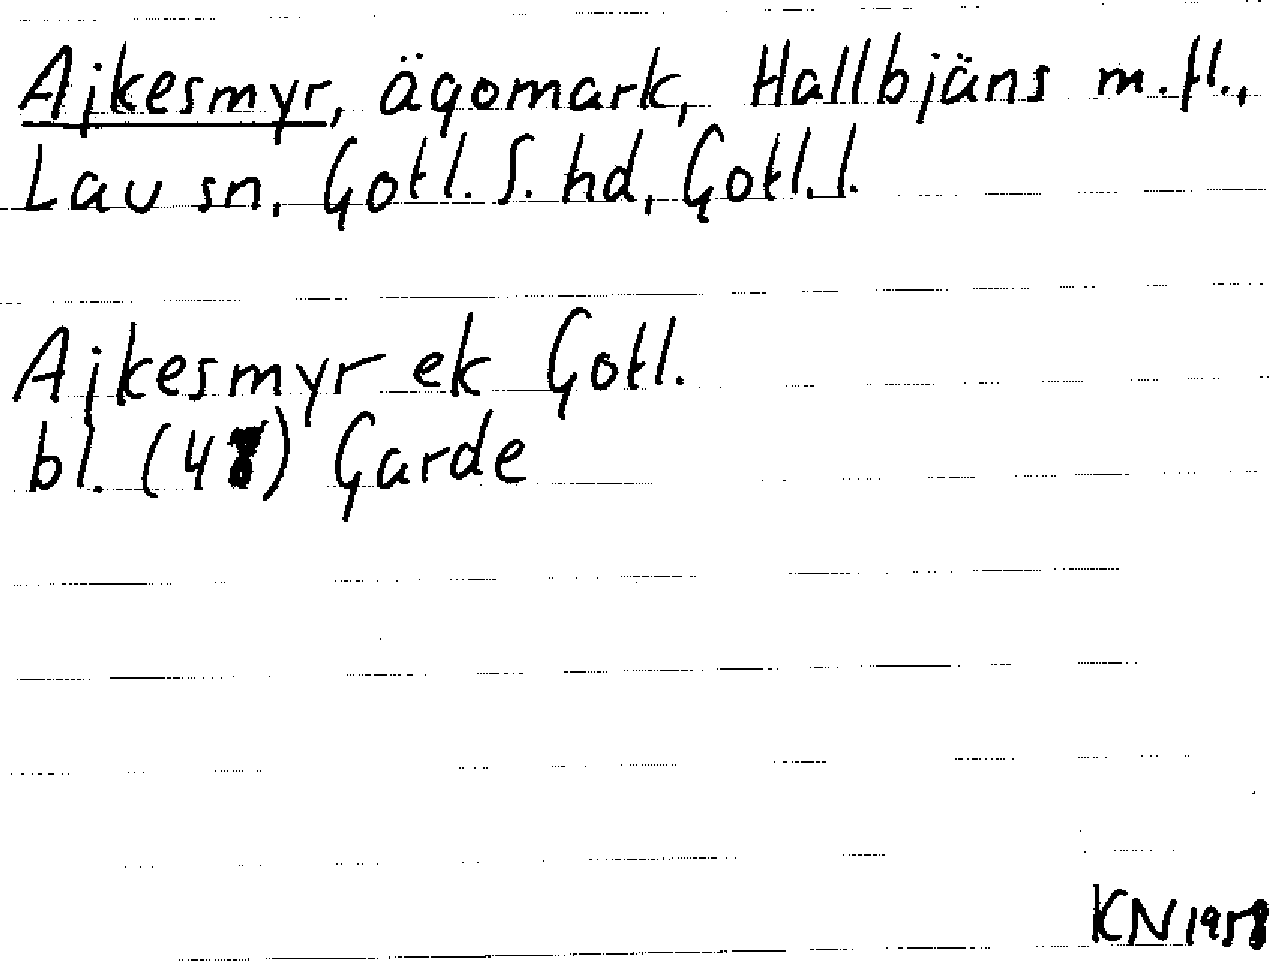 Ajkesmyr, ägomark, Hallbjäns m.fl.,
Lau sn, Gotl. S. hd, Gotl. l.
Ajkesmyr ek Gotl.
bl. (48) Garde
KN 1958